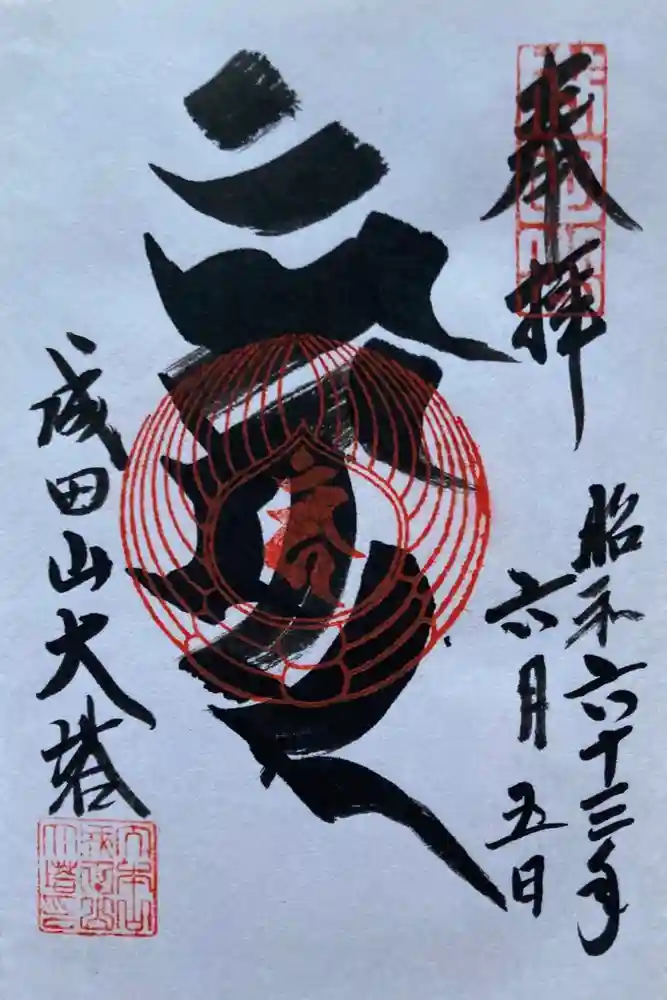 奉拝
昭和六十三年
六月五日
成田山大塔